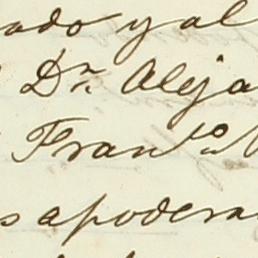 ado y al
Dn. Aleja
Franco
s apodera